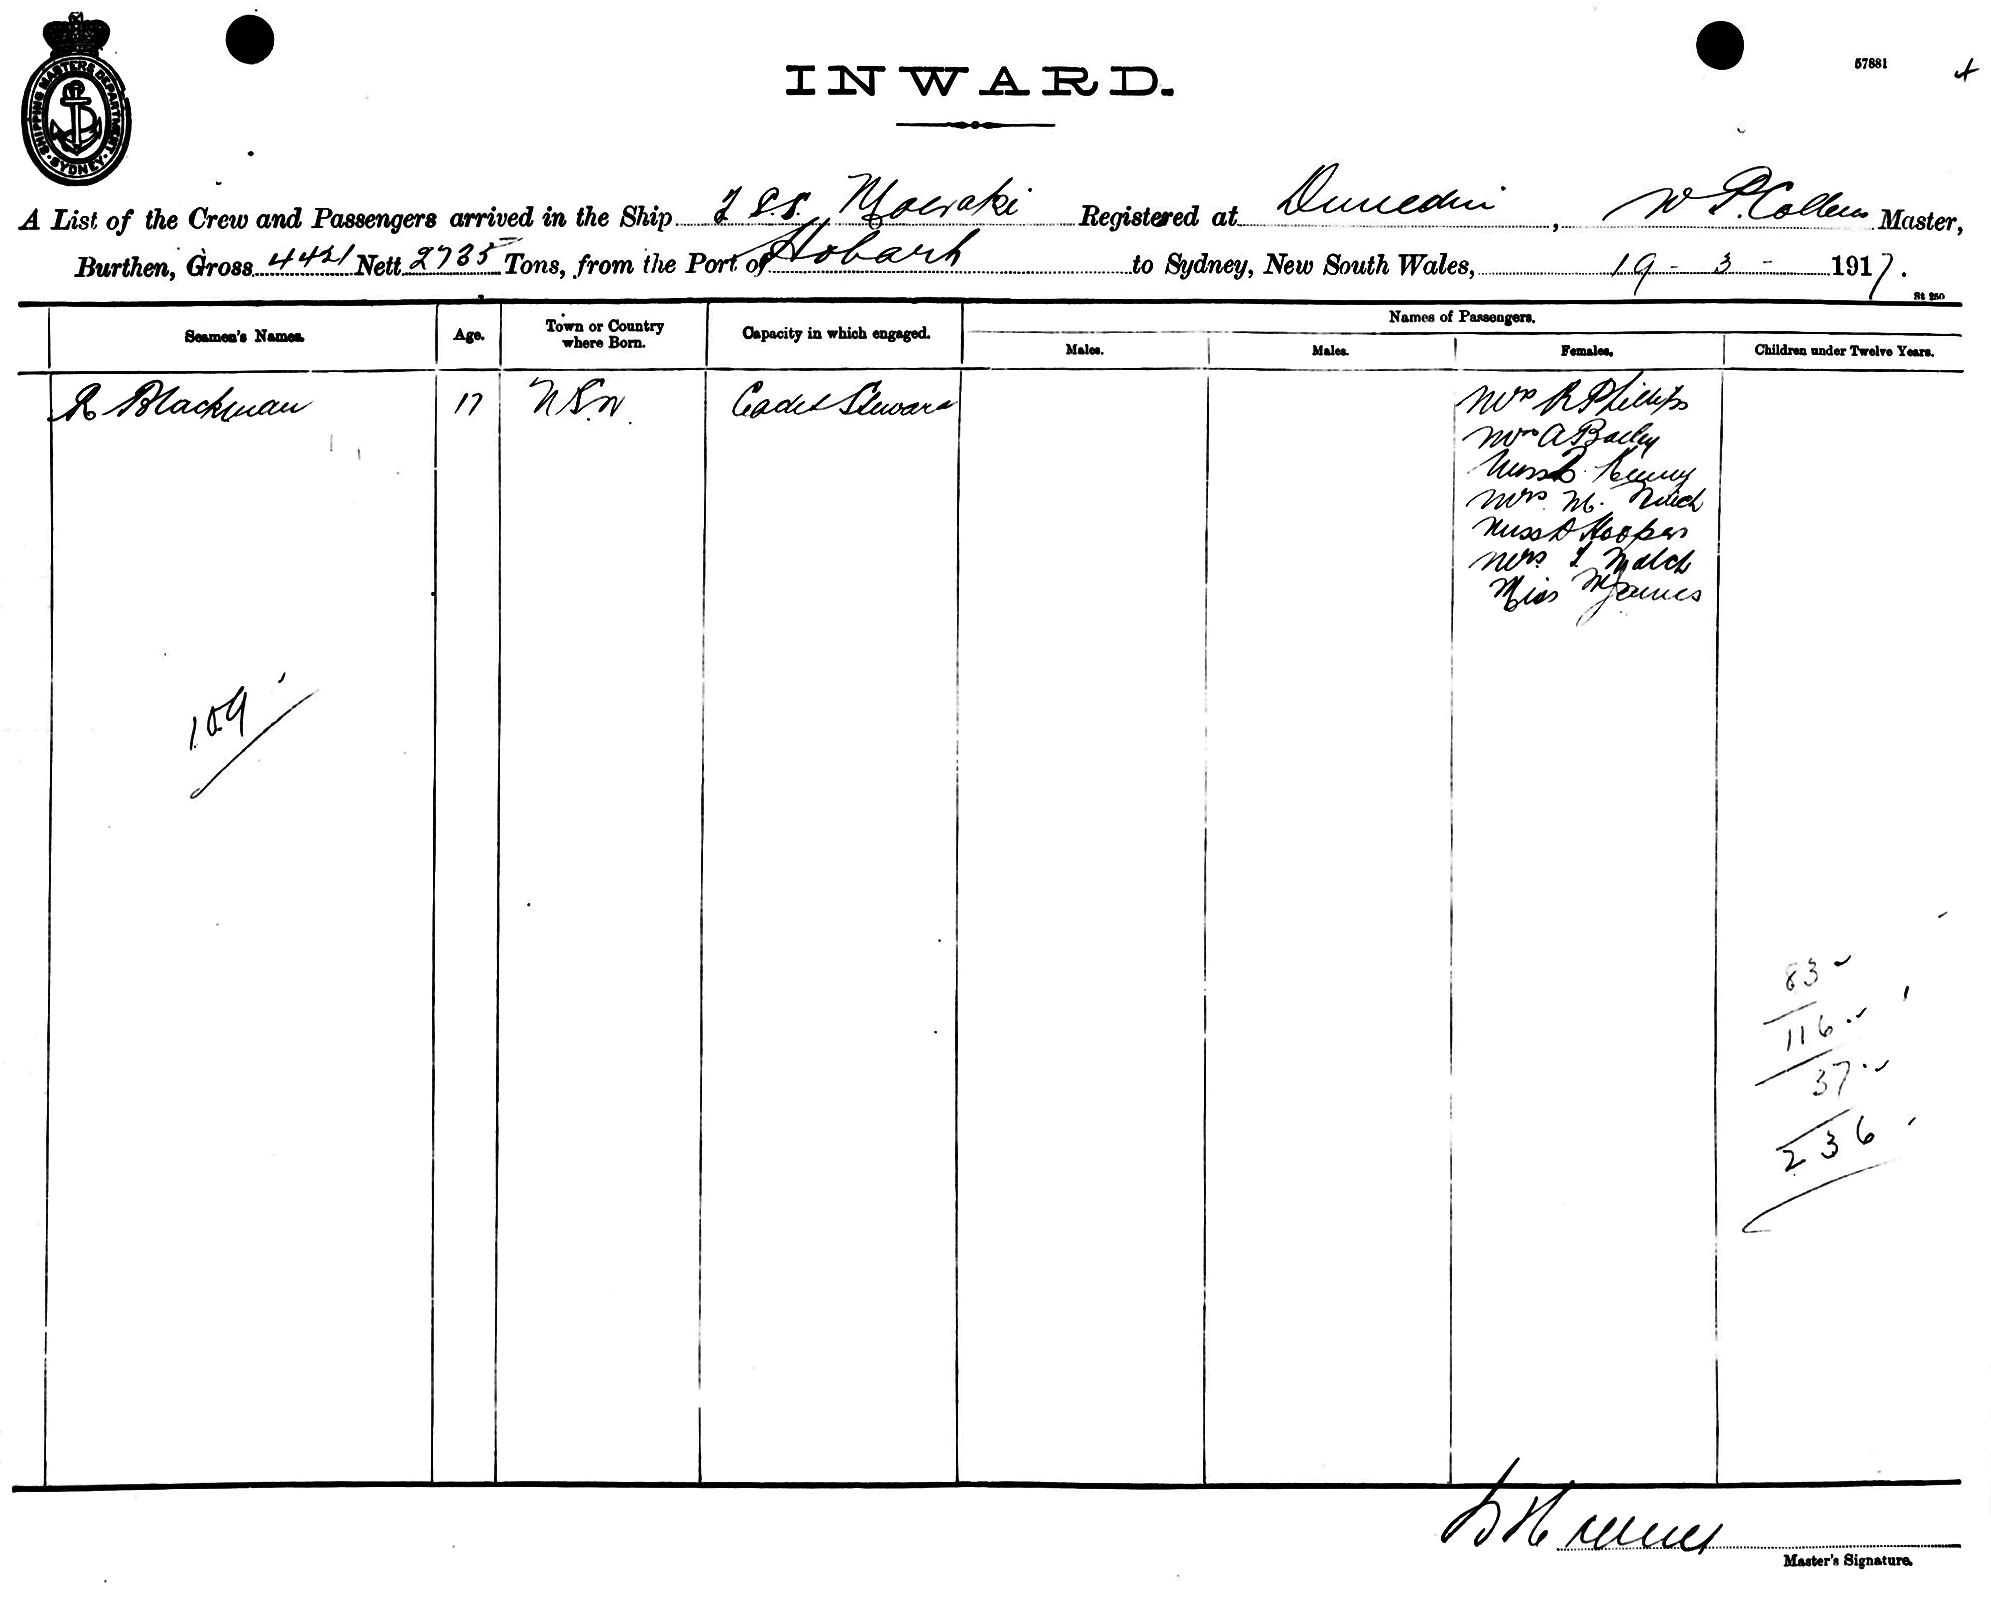 SHIPPING MASTERS DEPARTMENT. SYDNEY
57881
INWARD.
A List of the Crew and Passengers arrived in the Ship T S.S. Moeraki Registered at Dunedin, W P. Collins Master,
Burthen, Gross 4421 Nett 2735 Tons, from the Port of Hobart to Sydney, New South Wales, 19 - 3 - 1917.
St 250
Seamen's Names. Age. Town or Country where Born. Capacity in which engaged. Names of Passengers.
Males. Males. Females. Children under Twelve Years.
R Blackman 17 N.S.W. Cadet Steward Mrs R Phillips
Mrs A Bailey
Miss Kenny
Mrs M.
Miss D Hooper
Mrs
Miss M James
109
83
116
37
236
Master's Signature.